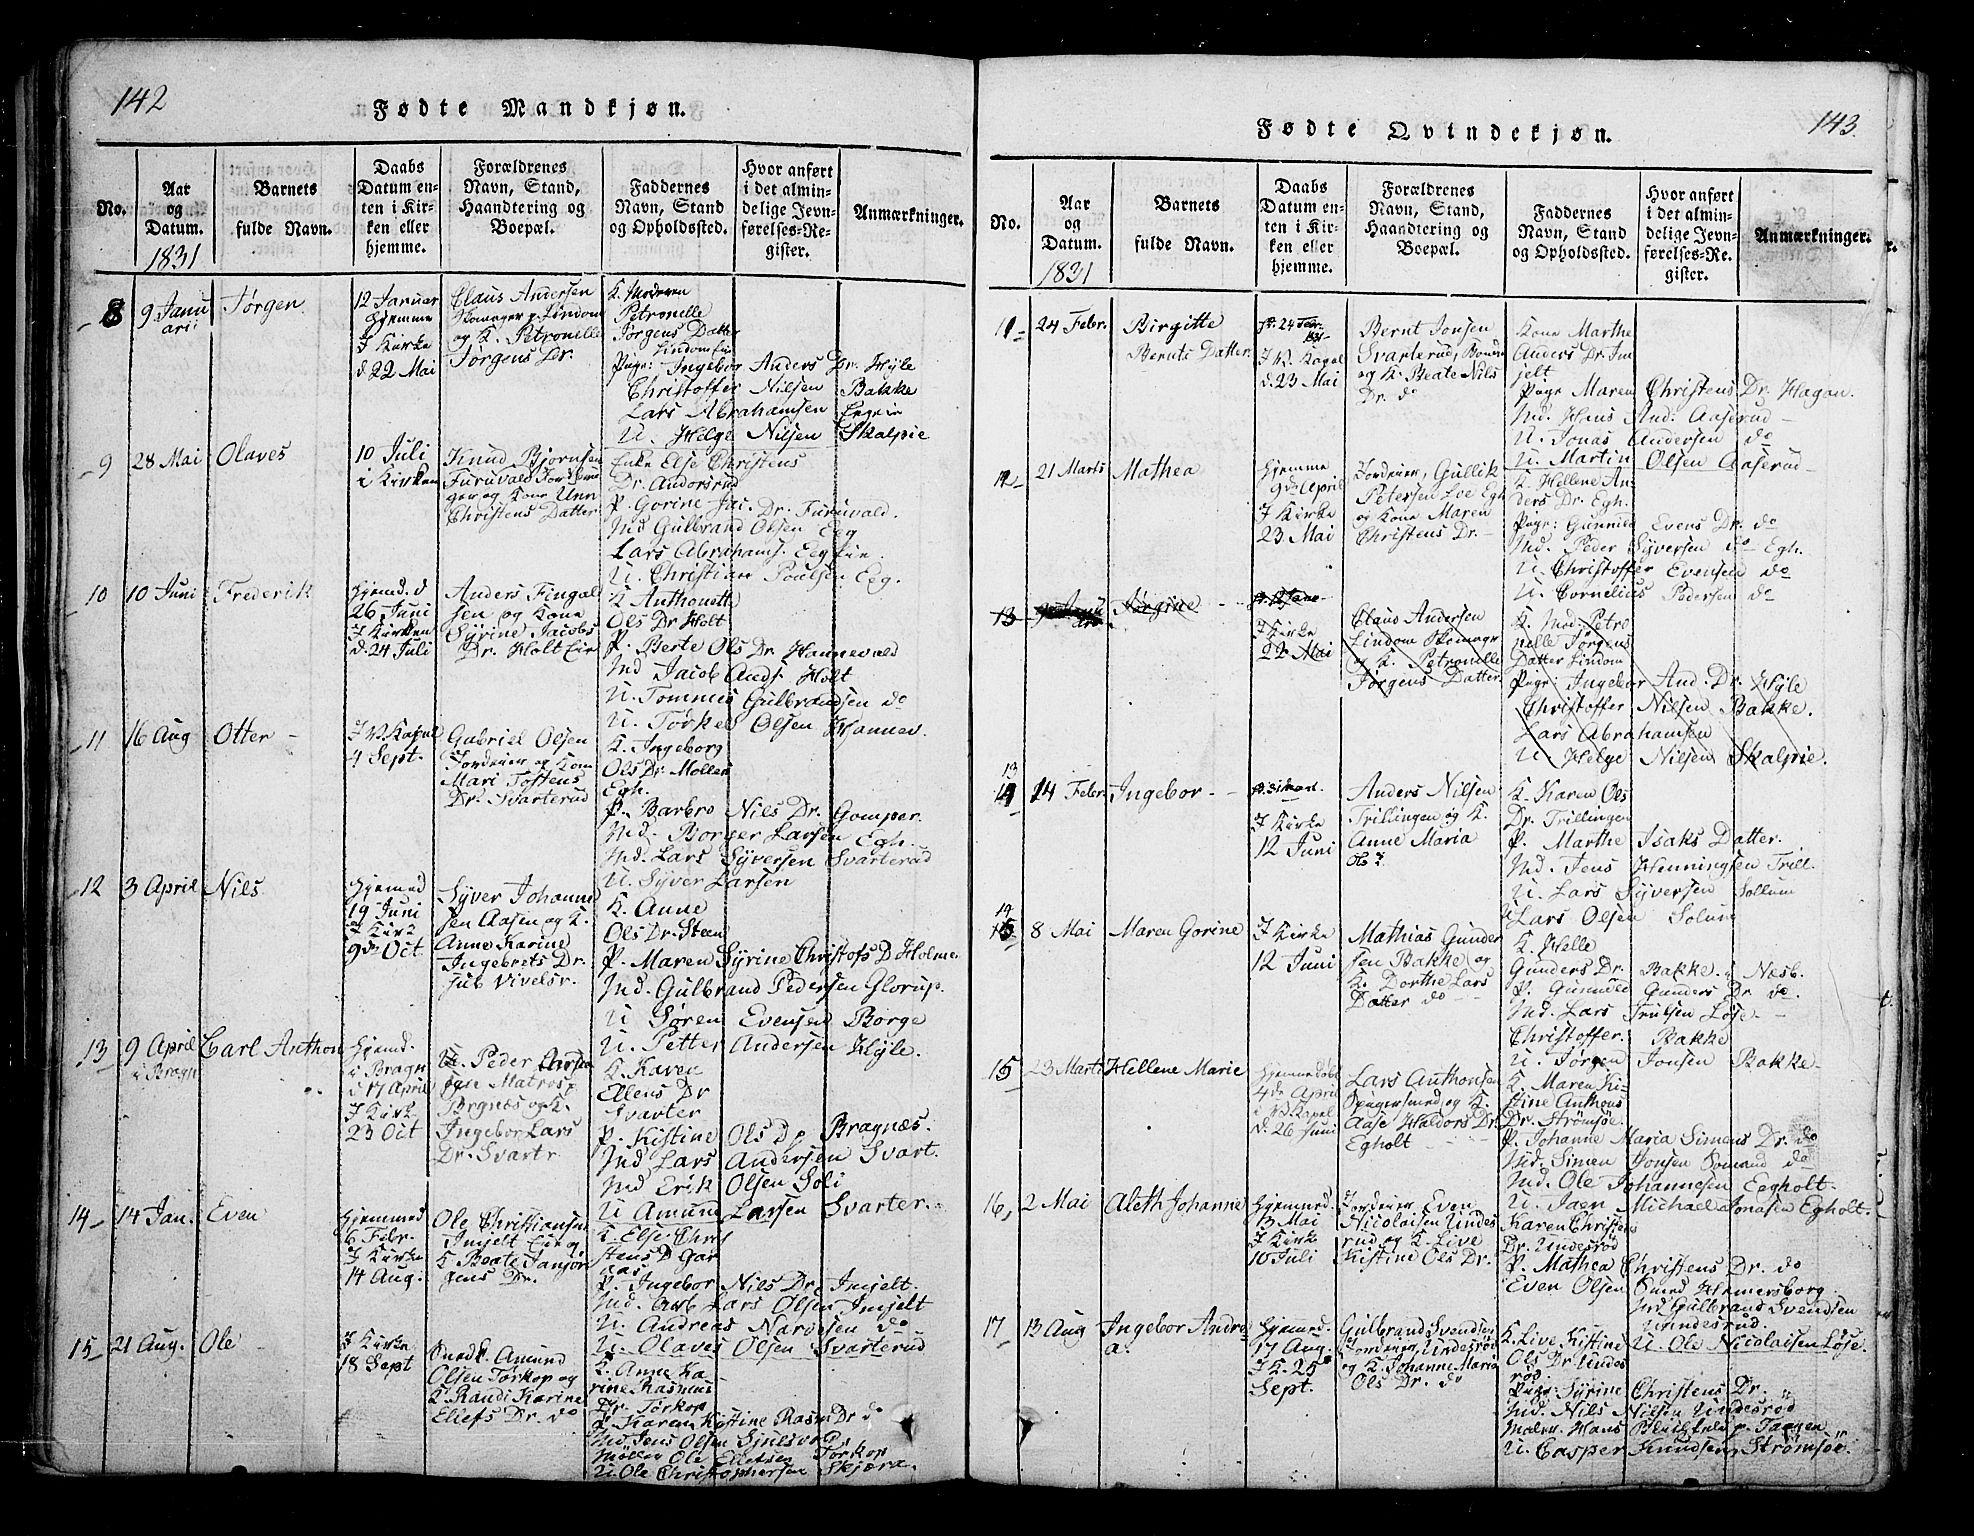 142
Fødte Mandkjøn.
No.
Aar
og
Datum.
1831
Barnets
fulde Navn.
Daabs
Datum en-
ten i Kir-
ken eller
hjemme.
Forældrenes
Navn, Stand,
Haandtering og
Boepæl.
Faddernes
Navn, Stand
og Opholdssted.
Hvor anført
i det almin-
delige Jevn-
førelses-Re-
gister.
Anmærkninger.
8
9 Janu
arii
Jørgen
12 Januar
hjemme
I Kirke
d. 22 Mai
Claus Andersen
Skomager p. Lindom
og K. Petronille
Jørgens Dr.
K. Moderen
Petronille
Jørgens Datter
Lindom Eie
Pige: Ingebor Anders Dr. Hÿle
Christoffer Nilsen Bakke
Lars Abrahamsen Egeeie
U. Helge Nilsen Skalpie
9
28 Mai
Olaves
10 Juli
i Kirken
Knud Bjørnsen
Furuvald
og Kone
Christens Datter
Enke Else Christens
Dr. Andorsrud
P. Gorine Jai. Dr. Furuvald.
Md Gulbrand Olsen Eeg
Lars Abrahams. Eeg Eie
U. Christian Poulsen Eeg.
10
10 Juni
Frederik
Hjemd. d
26 Juni
I Kirken
d. 24 Juli
Anders Fingal
sen og Kone
Syrine Jacobs
Dr. Holt Eie
K Anthonette
Ols Dr Holt
P. Berte Ols Dr. Hannevald
Md Jacob Ands Holt
U. Tommes Gulbrandsen do
U. Tørkel Olsen Hannev.
11
16 Aug
Otter
I V. Kapel
4 Sept.
Gabriel Olsen
Jordeier og Kone
Mari Tostens
Dr. Svarterud
K. Ingeborg
Ols Dr. Mollen
Egh.
P. Barbro Nils Dr. Gomper.
Md. Borger Larsen Egh.
Md. Lars Syversen Svarterud
U. Syver Larsen
12
3 April
Nils
Hjemmed
19 Juni
I Kirk
9de Oct
Syver Johanne
sen Aasen og K.
Anne Karine
Ingebrets Dr.
K. Anne
Ols Dr. Steen
P. Maren Syrine Christofs D Holme
Md. Gulbrand Pedersen Glorup.
U Søren Evensen Borge
U. Petter Andersen Hÿle.
13
9 April
i Bragn
Carl Anthon
Hjemd.
i Bragn
17 April
I Kirk.
23 Oct
Peder
Matros p
Bragnæs og K.
Ingebor Lars
Dr. Svartr
K. Karen
Ellens Dr
Svarter
P. Kistine Ols D p Bragnæs.
Md Lars Andersen Svart.
Md Erik Olsen Soli
U Amund Larsen Svarter.
14
14 Jan.
Even
Hjemmed
6 Febr.
I Kirke
14 Aug.
Ole Christiansen
Imjelt Eie og
K Beate Janjør
gens Dr.
K Else Chris
tens D Gar
aas
P. Ingebor Nils Dr. Imjelt.
Md. Lars Olsen Imjelt
U. Andreas Narvesen do
U. Olaves Olsen Svarterud
15
21 Aug.
Ole
I Kirke
18 Sept
Snedk. Amund
Olsen Tørkop og
K Randi Karine
Ellefs Dr. do
K. Anne Ka-
rine Rasmus
Dr. Tørkop
P. Karen Kistine Rasm Dr do
Md Jens Olsen Sjulsvold,
Møller Ole Ellefsen Tørkop
U. Ole Christophersen Skjæra.
143.
Fødte Qvindekjøn.
No.
Aar
og
Datum.
1831
Barnets
fulde Navn.
Daabs
Datum en-
ten i Kir-
ken eller
hjemme.
Forældrenes
Navn, Stand,
Haandtering og
Boepæl.
Faddernes
Navn, Stand
og Opholdssted.
Hvor anført
i det almin-
delige Jevn-
førelses-Re-
gister.
Anmærkninger.
11
24 Febr.
Birgitte
Bernts Datter
24 Febr.
I V. Kapel
d. 23 Mai
Bernt Jonsen
Svarterud, Bonde
og K. Beate Nils
Dr. do
Kone Marthe
Anders Dr. Im
jelt
Pige Maren Christens Dr. Hagan.
Md. Hans And. Aaserud
U. Jonas Andersen do
U. Martin Olsen Aaserud
12
21 Marts
Mathea
Hjemme
9de April
I Kirke
23 Mai
Jordeier, Gullik
Petersen Loe Egh
og Kone Maren
Christens Dr.
K. Hellene An-
ders Dr. Egh.
Pige: Gunnild Evens Dr. do
Md. Peder Syversen do Egh.
U. Christoffer Evensen do
U. Cornelius Pedersen do
13
Jørgine
I Kirke
22 Mai
Claus Andersen
Lindom Skomager
og K. Petronille
Jørgens Datter
K. Mod. Petro
nille Jørgens
Datter Lindom
Pige: Ingebor And. Dr. Hÿle
Christoffer Nilsen Bakke.
Lars Abrahamsen
U Helge Nilsen Skalpie.
13
14
14 Febr.
Ingebor
I Kirke
12 Juni
Anders Nilsen
Trillingen og K.
Anne Maria
K. Karen Ols
Dr. Trillingen
P. Marthe Isaks Datter.
Md. Jens Henningsen Trill.
U. Lars Syversen Sollum
U Lars Olsen Solum
14
15
8 Mai
Maren Gorine
I Kirke
12 Juni
Mathias Gunder
sen Bakke og
K. Dorthe Lars
Datter do
K. Helle
Gunders Dr. Bakke i Næsb.
P. Gunnild Gunders Dr do.
Md. Lars Trulsen Løse
Christoffer Bakke
U. Jørgen Jonsen Bakke
15
23 Marts
Hellene Marie
Hjemmedøbt
4de April
i V. Kapel
d. 26 Juni
Lars Anthonsen
Spigersmed og K.
Aase Haldors Dr.
Egholt
K. Maren Ki-
stine Anthons
Dr. Strømsøe
P. Johanne Maria Simens Dr. do
Md. Simen Jonsen Sømand do
Md. Ole Johannesen Eegholt.
U. Michael Jonasen Egholt.
16
2 Mai
Aleth Johanne
Hjemmed.
13 Mai
I Kirke
10 Juli
Jordeier Even
Nicolaisen Undes
rud og K. Live
Kistine Ols Dr.
Karen Christens
Dr. Undesrød
P. Mathea Christens Dr. do
Even Olsen Smed Hemersborg
Md Gulbrand Svendsen
Undesrud.
U. Ole Nicolaisen Løse.
17
13 Aug
Ingebor Andre
a.
Hjemmed.
17 Aug.
I K. 25
Sept.
Gulbrand Svendsen
Jordeier Undesrød
og K. Johanne Maria
Ols Dr. do
K. Live Kistine
Ols Dr Undes
rød.
Pige: Syrine Christens Dr.
Md. Nils Nilsen Undesrød
Maler. Hans
U. Casper Knudsen, Strømsøe.